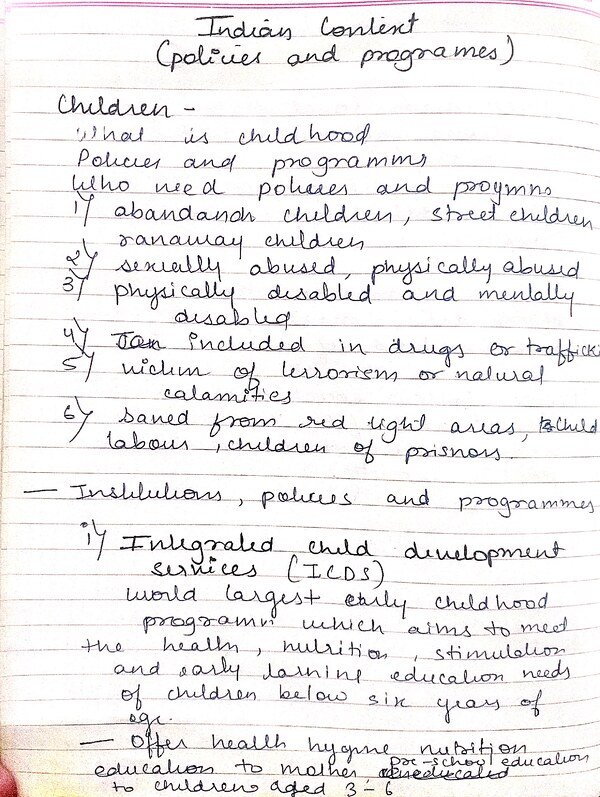 Indian Context
(policies and programes)
Children -
What is childhood
Policies and programms
Who need policies and progmns
1) abandanoh children, street children
ranaway children
2) sexually abused, physically abused
3) physically disabled and mentally
disabled
4) included in drugs or traffick
5) victim of terrorism or natural
calamities
6) saved from red light areas, child
labour, children of prisnors.
— Institutions, policies and programmes
i) Integrated child development
services (ICDS)
world largest early childhood
programm which aims to meet
the health, nutrition, stimulation
and early larning education needs
of children below six years of
age.
— Offer health hygine nutrition
pre-school education
education to mother,
to children aged 3-6